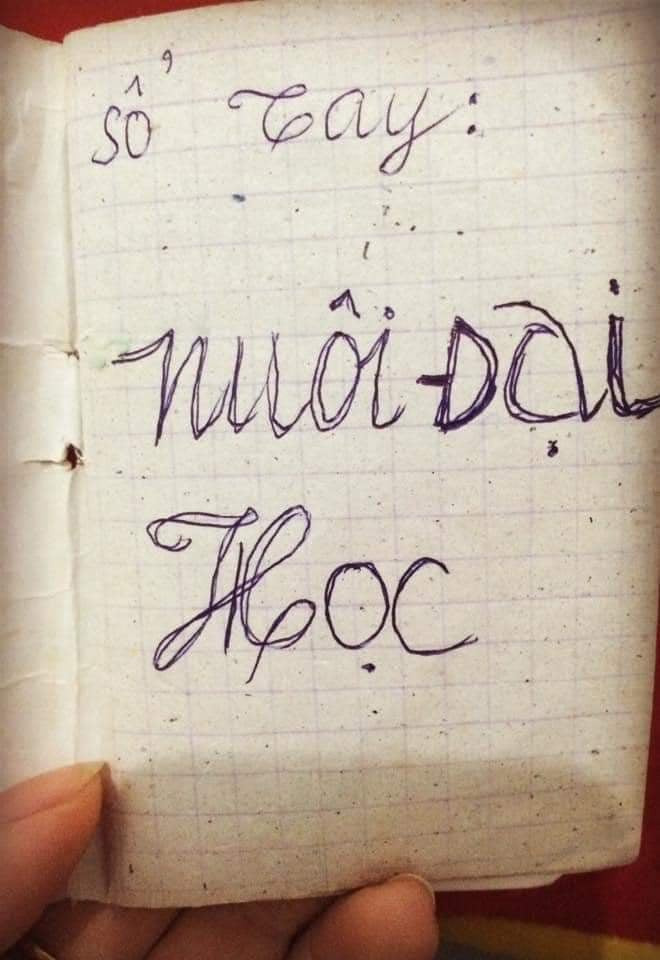 Sổ Tay:
Nuôi Đại
Học